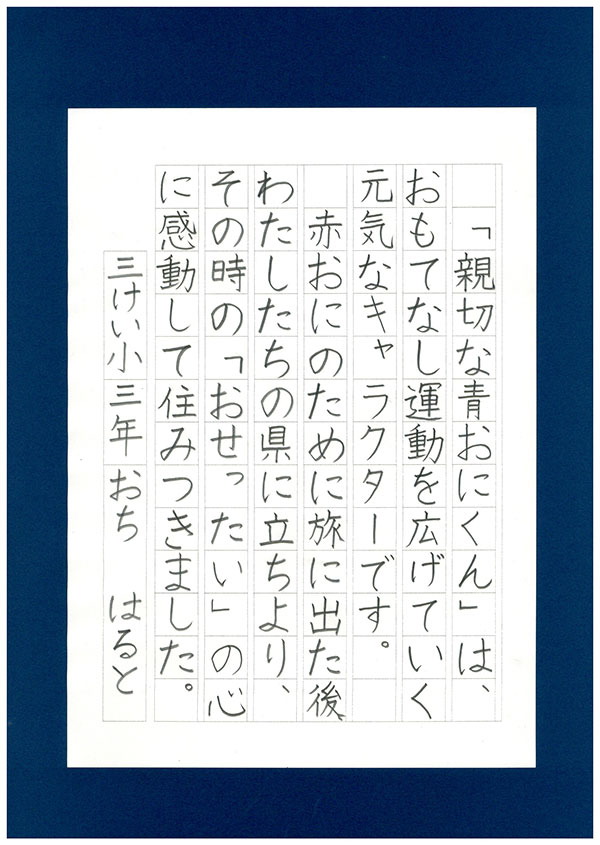 「親切な青おにくん」は、
おもてなし運動を広げていく
元気なキャラクターです。
赤おにのために旅に出た後、
わたしたちの県に立ちより、
その時の「おせったい」の心
に感動して住みつきました。
三けい小三年おち　はると